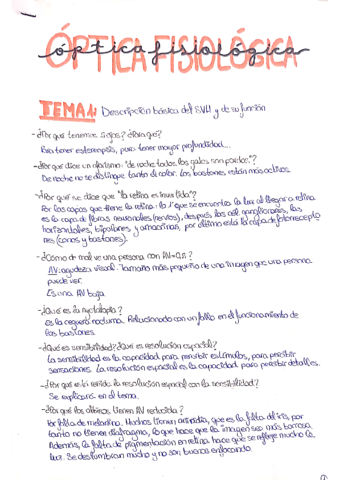 ÓPTICA FISIOLÓGICA
óptica fisiológica
TEMA 1: Descripción básica del SVH y de su función
- ¿Por qué tenemos 2 ojos? ¿Para qué?
Para tener estereopsis, para tener mayor profundidad...
- ¿Por qué dice un aforismo: "de noche todos los gatos son pardos"?
De noche no se distingue tanto el color. Los bastones están más activos.
- ¿Por qué se dice que "la retina es invertida"?
Por las capas que tiene la retina: lo 1º que se encuentra la luz al llegar a retina
es la capa de fibras neuronales (nervios), después, las cél. ganglionares, las
horizontales, bipolares y amacrinas, por último está la capa de fotorrecepto
res (conos y bastones).
- ¿Cómo de mal ve una persona con AV=0,1?
AV: agudeza visual. Tamaño más pequeño de una imagen que una persona
puede ver.
Es una AV baja
- ¿Qué es la nyctalopia?
Es la ceguera nocturna. Relacionado con un fallo en el funcionamiento de
los bastones.
- ¿Qué es sensibilidad? ¿Qué es resolución espacial?
La sensibilidad es la capacidad para percibir estímulos, para percibir
sensaciones. La resolución espacial es la capacidad para percibir detalles.
- ¿Por qué está reñida la resolución espacial con la sensibilidad?
Se explicará en el tema.
- ¿Por qué los albinos tienen AV reducida?
Por falta de melanina. Muchos tienen aniridia, que es la falta del iris, por
tanto no tienen diafragma, lo que hace que la imagen sea más mala.
Además, la falta de pigmentación en retina hace que se refleje mucho la
luz. Se deslumbran mucho y no son buenos enfocando.